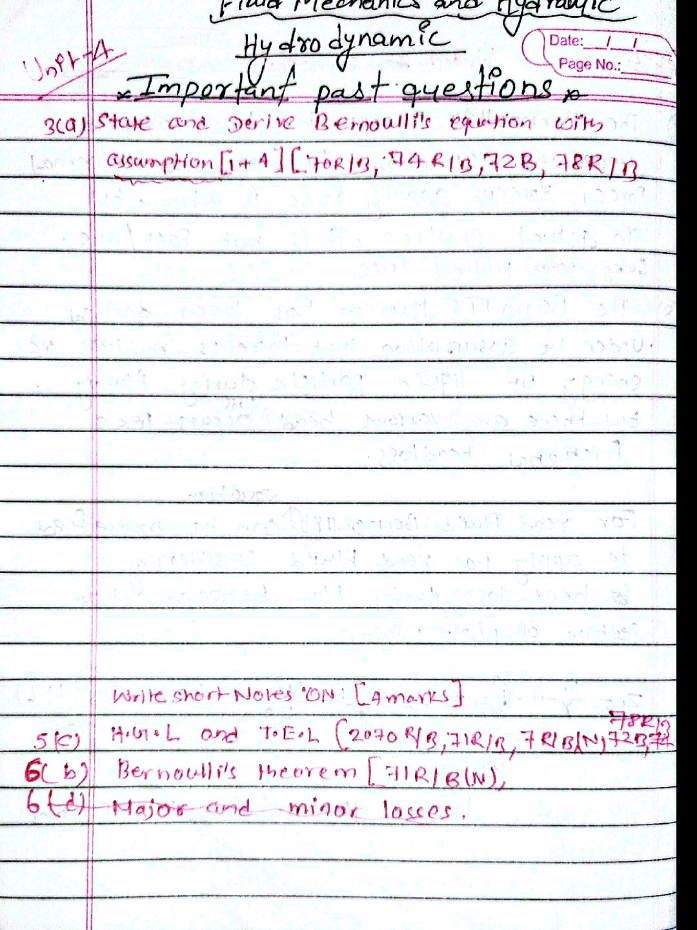 Fluid Mechanics and Hydraulic
Hydrodynamic
Unit-4
Date: / /
Page No.:
* Important past questions *
3(a) State and Derive Bernoulli's equition with
assumption [1+4] [70R/B, 74R/B, 72B, 78R/B
Write short Notes ON: [4 marks]
78R/B
5(c) H.G.L and T.E.L (2070 R/B, 71R/B, 7R/B(N), 72B, 74
6(b) Bernoulli's theorem [71R/B(N),
6(d) Major and minor losses.